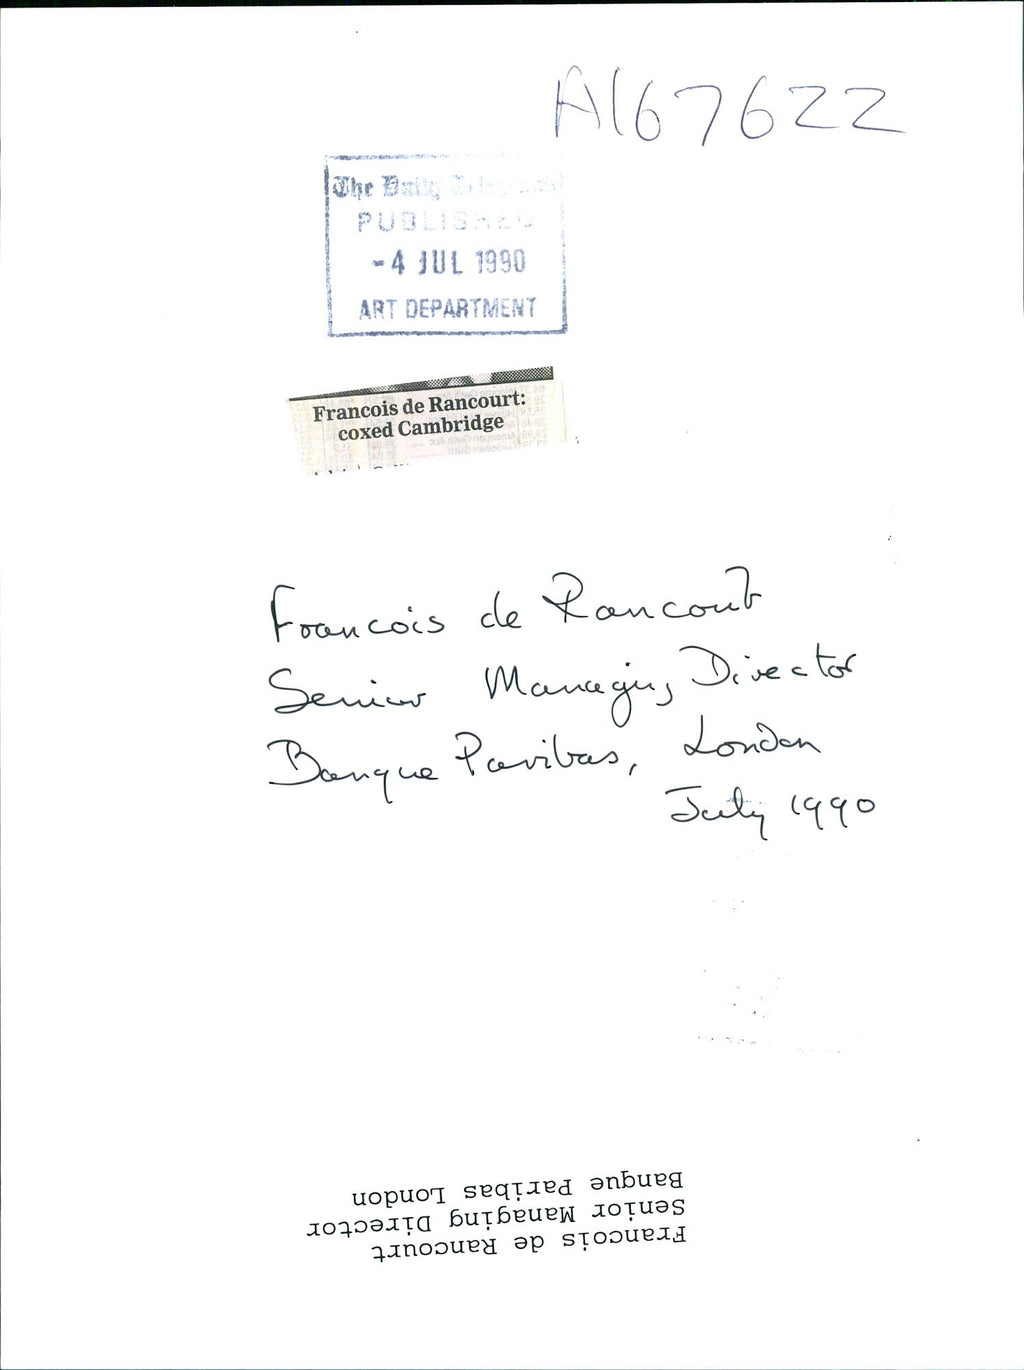 A167622
The Daily Telegraph
PUBLISHED
-4 JUL 1990
ART DEPARTMENT
Francois de Rancourt:
coxed Cambridge
Francois de Rancourt
Senior Managing Director
Banque Paribas, London
July 1990
Francois de Rancourt
Senior Managing Director
Banque Paribas London